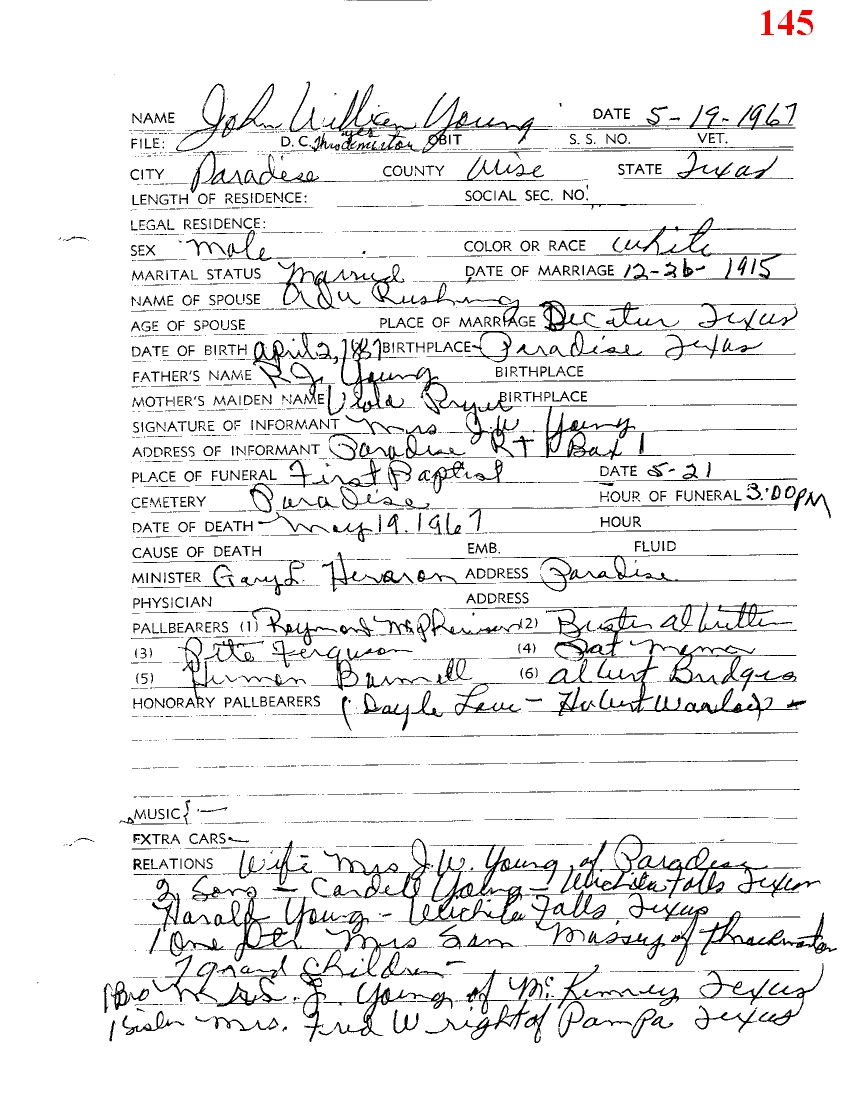 145
NAME John William Young DATE 5-19-1967
FILE: D.C. yes Throckmorton OBIT S. S. NO. VET.
CITY Paradise COUNTY Wise STATE Texas
LENGTH OF RESIDENCE: SOCIAL SEC. NO.
LEGAL RESIDENCE:
SEX Male COLOR OR RACE white
MARITAL STATUS Married DATE OF MARRIAGE 12-26-1915
NAME OF SPOUSE Rushing
AGE OF SPOUSE PLACE OF MARRIAGE Decatur Texas
DATE OF BIRTH April 2, 1887 BIRTHPLACE Paradise Texas
FATHER'S NAME R.J. Young BIRTHPLACE
MOTHER'S MAIDEN NAME Viola Pryer BIRTHPLACE
SIGNATURE OF INFORMANT Mrs J.W. Young
ADDRESS OF INFORMANT Paradise Rt 1 Box 1
PLACE OF FUNERAL First Baptist DATE 5-21
CEMETERY Paradise HOUR OF FUNERAL 3:00 PM
DATE OF DEATH May 19, 1967 HOUR
CAUSE OF DEATH EMB. FLUID
MINISTER Gary L. ADDRESS Paradise
PHYSICIAN ADDRESS
PALLBEARERS (1) Raymond McPherson (2) Buster Albritten
(3) Pete Ferguson (4) Pat
(5) Herman (6) Albert Bridges
HONORARY PALLBEARERS (Dayle - Hubert
MUSIC
EXTRA CARS
RELATIONS Wife Mrs J.W. Young of Paradise
2 Sons - Cardell Young - Wichita Falls Texas
Harald Young - Wichita Falls, Texas
1 One Dtr Mrs Sam Massey of Throckmorton
7 grand children
1 Bro S.J. Young of McKinney Texas
1 Sister - Mrs. Fred Wright of Pampa Texas